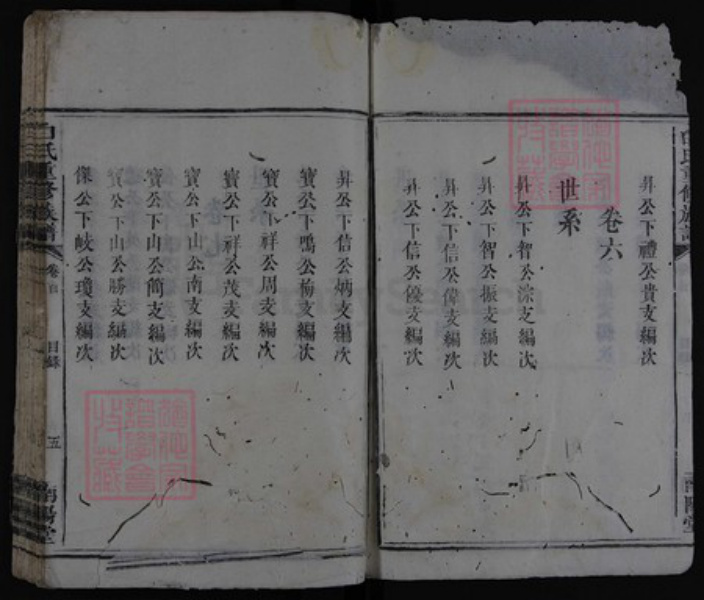 昇公下禮公貴支編次
卷六
世系
昇公下智公深支編次
昇公下智公振支編次
昇公下信公偉支編次
昇公下信公優支編次
昇公下信公炳支編次
寳公下鳴公梅支編次
寳公下祥公周支編次
寳公下祥公茂支編次
寳公下山公南支編次
寳公下山公簡支編次
寳公下山公勝支編次
保公下岐公瓊支編次
白氏重修族譜
卷首
目録
五
南陽堂
白氏重修族譜
南陽堂
FamilySearch